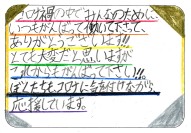 コロナ禍の中でみんなのために、
いつもがんばって働いて下さって、
ありがとうございます!!
とても大変だと思いますが
これからもがんばって下さい!!
ぼくたちも、コロナに気を付けながら
応援しています。